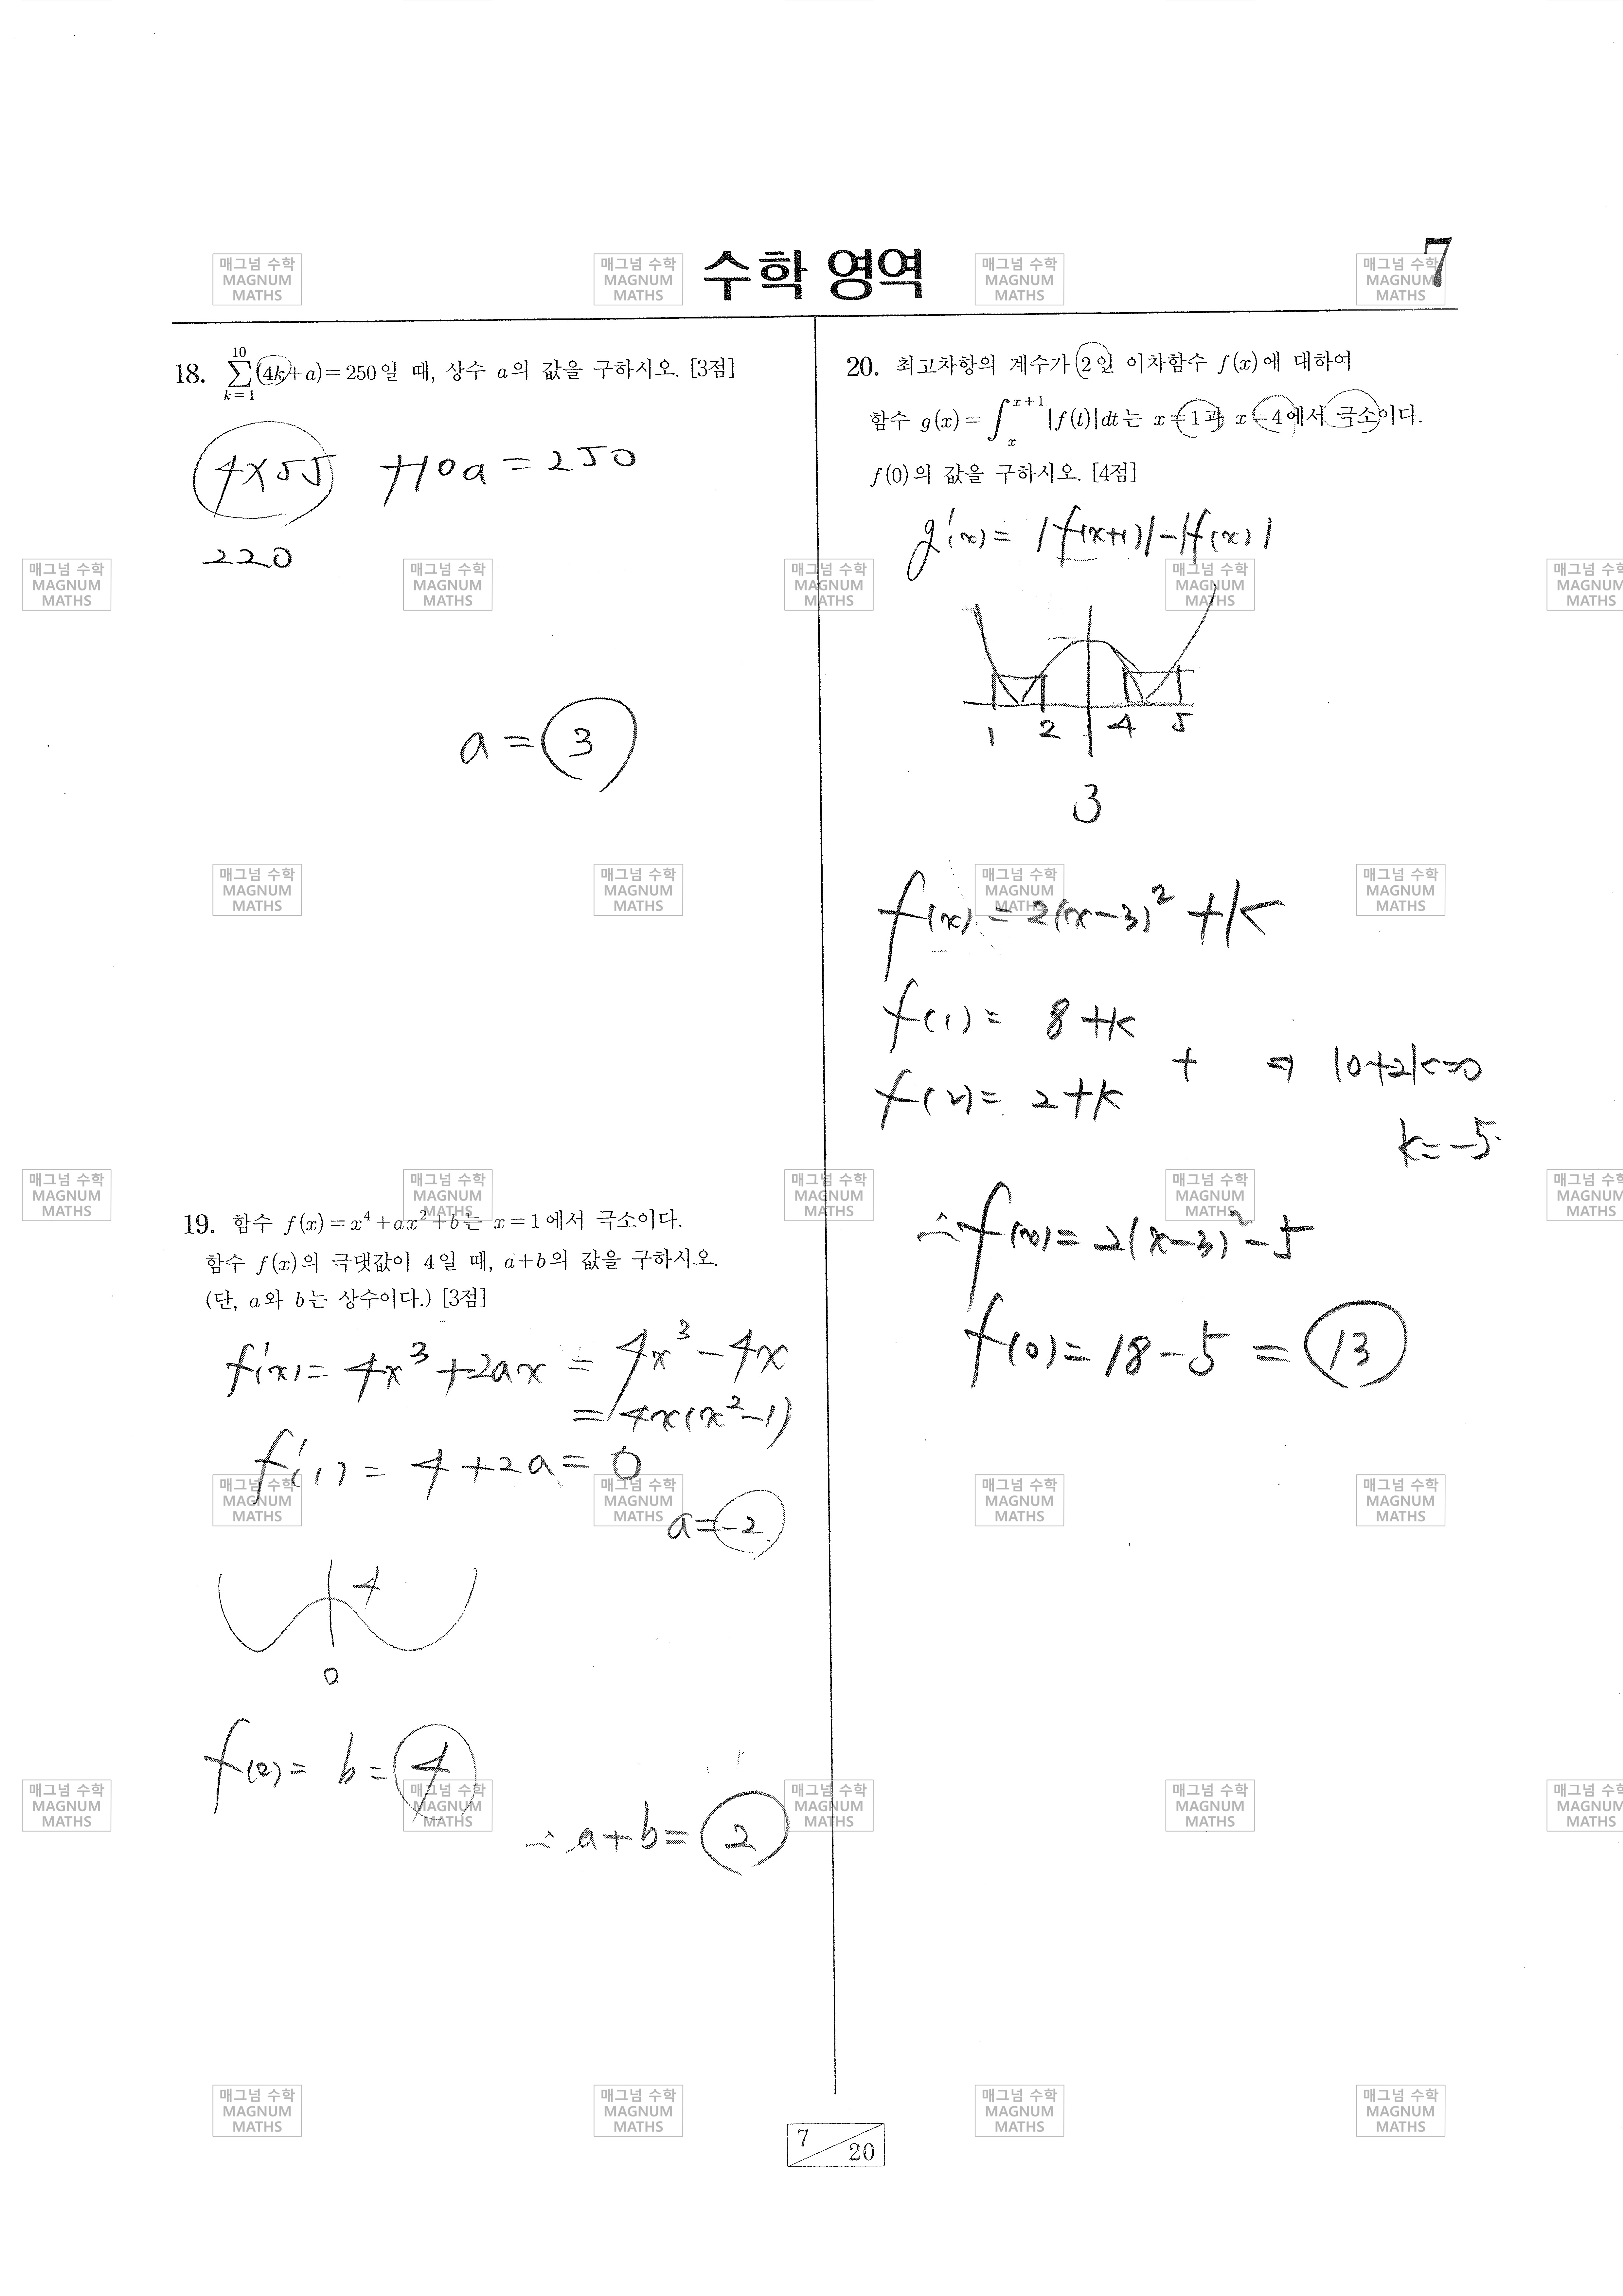 수학 영역
7
18. \sum_{k=1}^{10}(4k+a)=250일 때, 상수 a의 값을 구하시오. [3점]
4×55 +10a=250
220
a=3
19. 함수 f(x)=x^4+ax^2+b는 x=1에서 극소이다.
함수 f(x)의 극댓값이 4일 때, a+b의 값을 구하시오.
(단, a와 b는 상수이다.) [3점]
f'(x)=4x^3+2ax=4x^3-4x
=4x(x^2-1)
f'(1)=4+2a=0
a=-2
4
0
f(0)=b=4
∴a+b=2
20. 최고차항의 계수가 2인 이차함수 f(x)에 대하여
함수 g(x)=\int_{x}^{x+1}|f(t)|dt는 x=1과 x=4에서 극소이다.
f(0)의 값을 구하시오. [4점]
g'(x)=|f(x+1)|-|f(x)|
1 2 4 5
3
f(x)=2(x-3)^2+k
f(1)=8+k
+ ⇒ 10+2k=0
f(2)=2+k
k=-5
∴f(x)=2(x-3)^2-5
f(0)=18-5=13
7/20
매그넘 수학
MAGNUM
MATHS